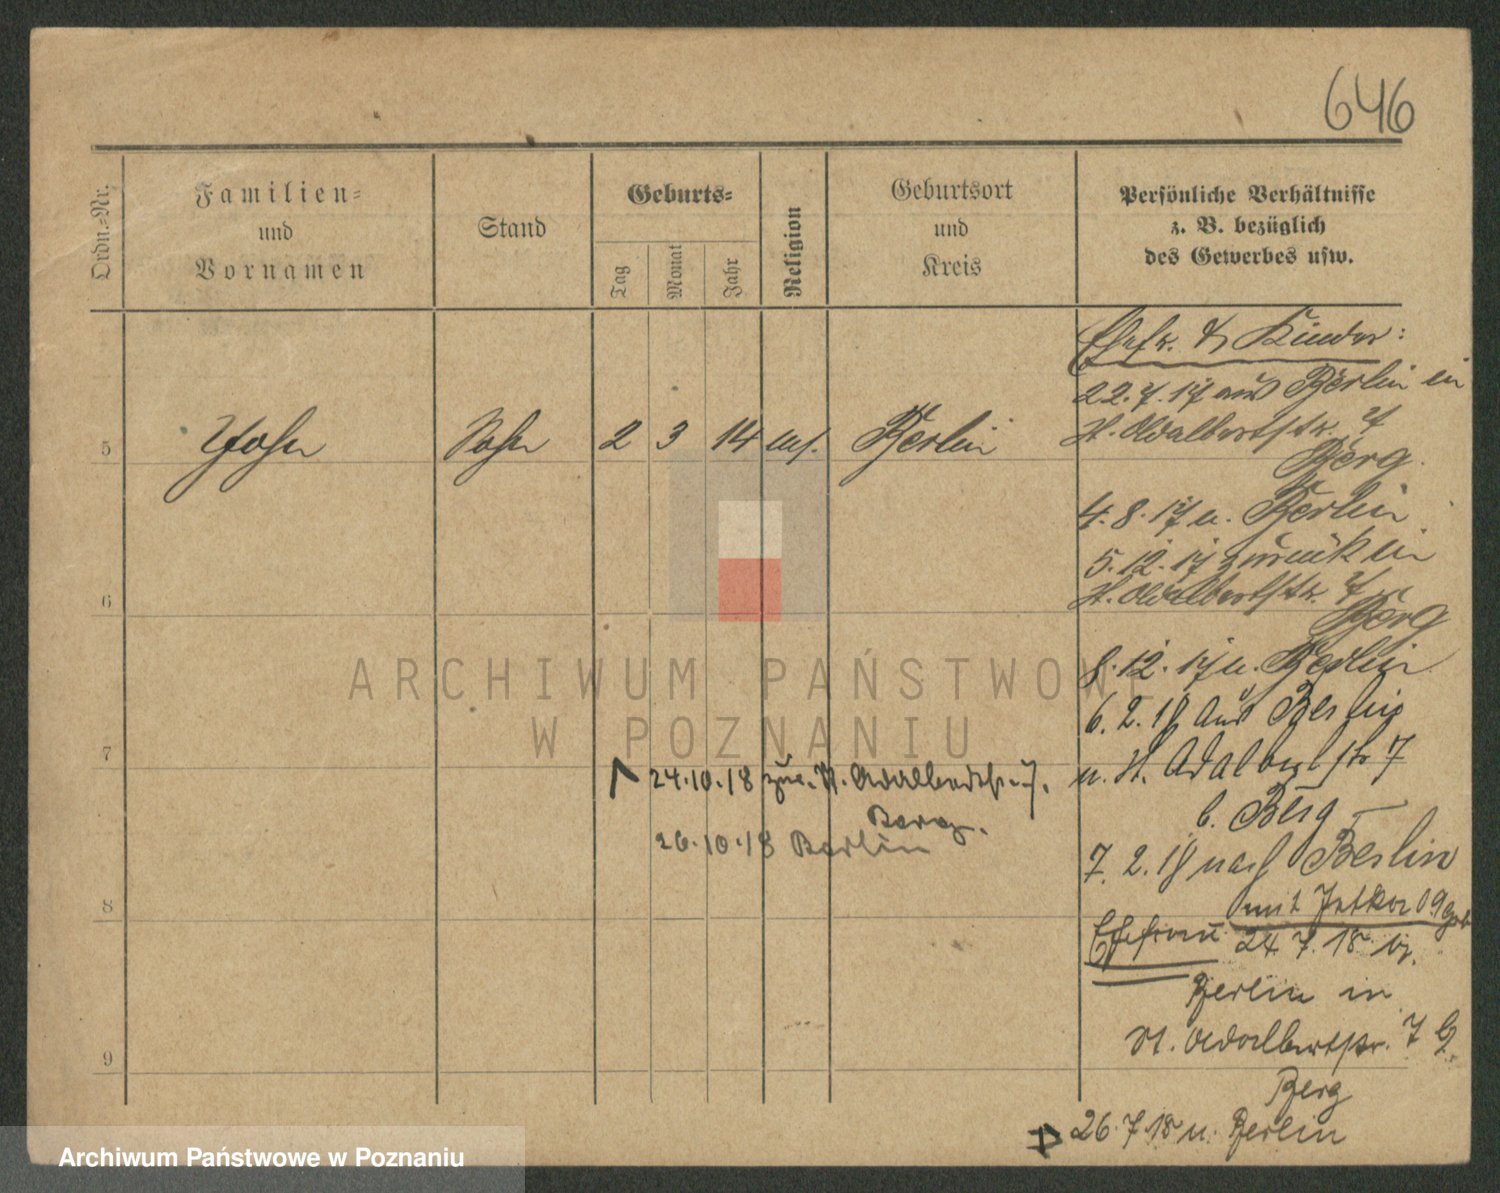 646
Ordn.-Nr.
Familien-
und
Vornamen
Stand
Geburts-
Tag
Monat
Jahr
Religion
Geburtsort
und
Kreis
Persönliche Verhältnisse
z. B. bezüglich
des Gewerbes usw.
Ehefr. & Kinder:
22.7.17 aus Berlin in
St. Adalbertstr. 7
Berg
5 John Sohn 2 3 14 Berlin
4.8.17 n. Berlin
5.12.17 zurück in
6
St. Adalbertstr. 7
Berg
8.12.17 n. Berlin
6.2.18 aus Berlin
7
n. St. Adalbertstr 7
b. Berg
24.10.18 zur. St. Adalbertstr. 7.
Berg.
26.10.18 Berlin
7.2.18 nach Berlin
8
mit
Ehefrau 24.7.18 v.
Berlin in
St. Adalbertstr. 7 b.
9
Berg
26.7.18 n. Berlin
ARCHIWUM PAŃSTWOWE
W POZNANIU
Archiwum Państwowe w Poznaniu